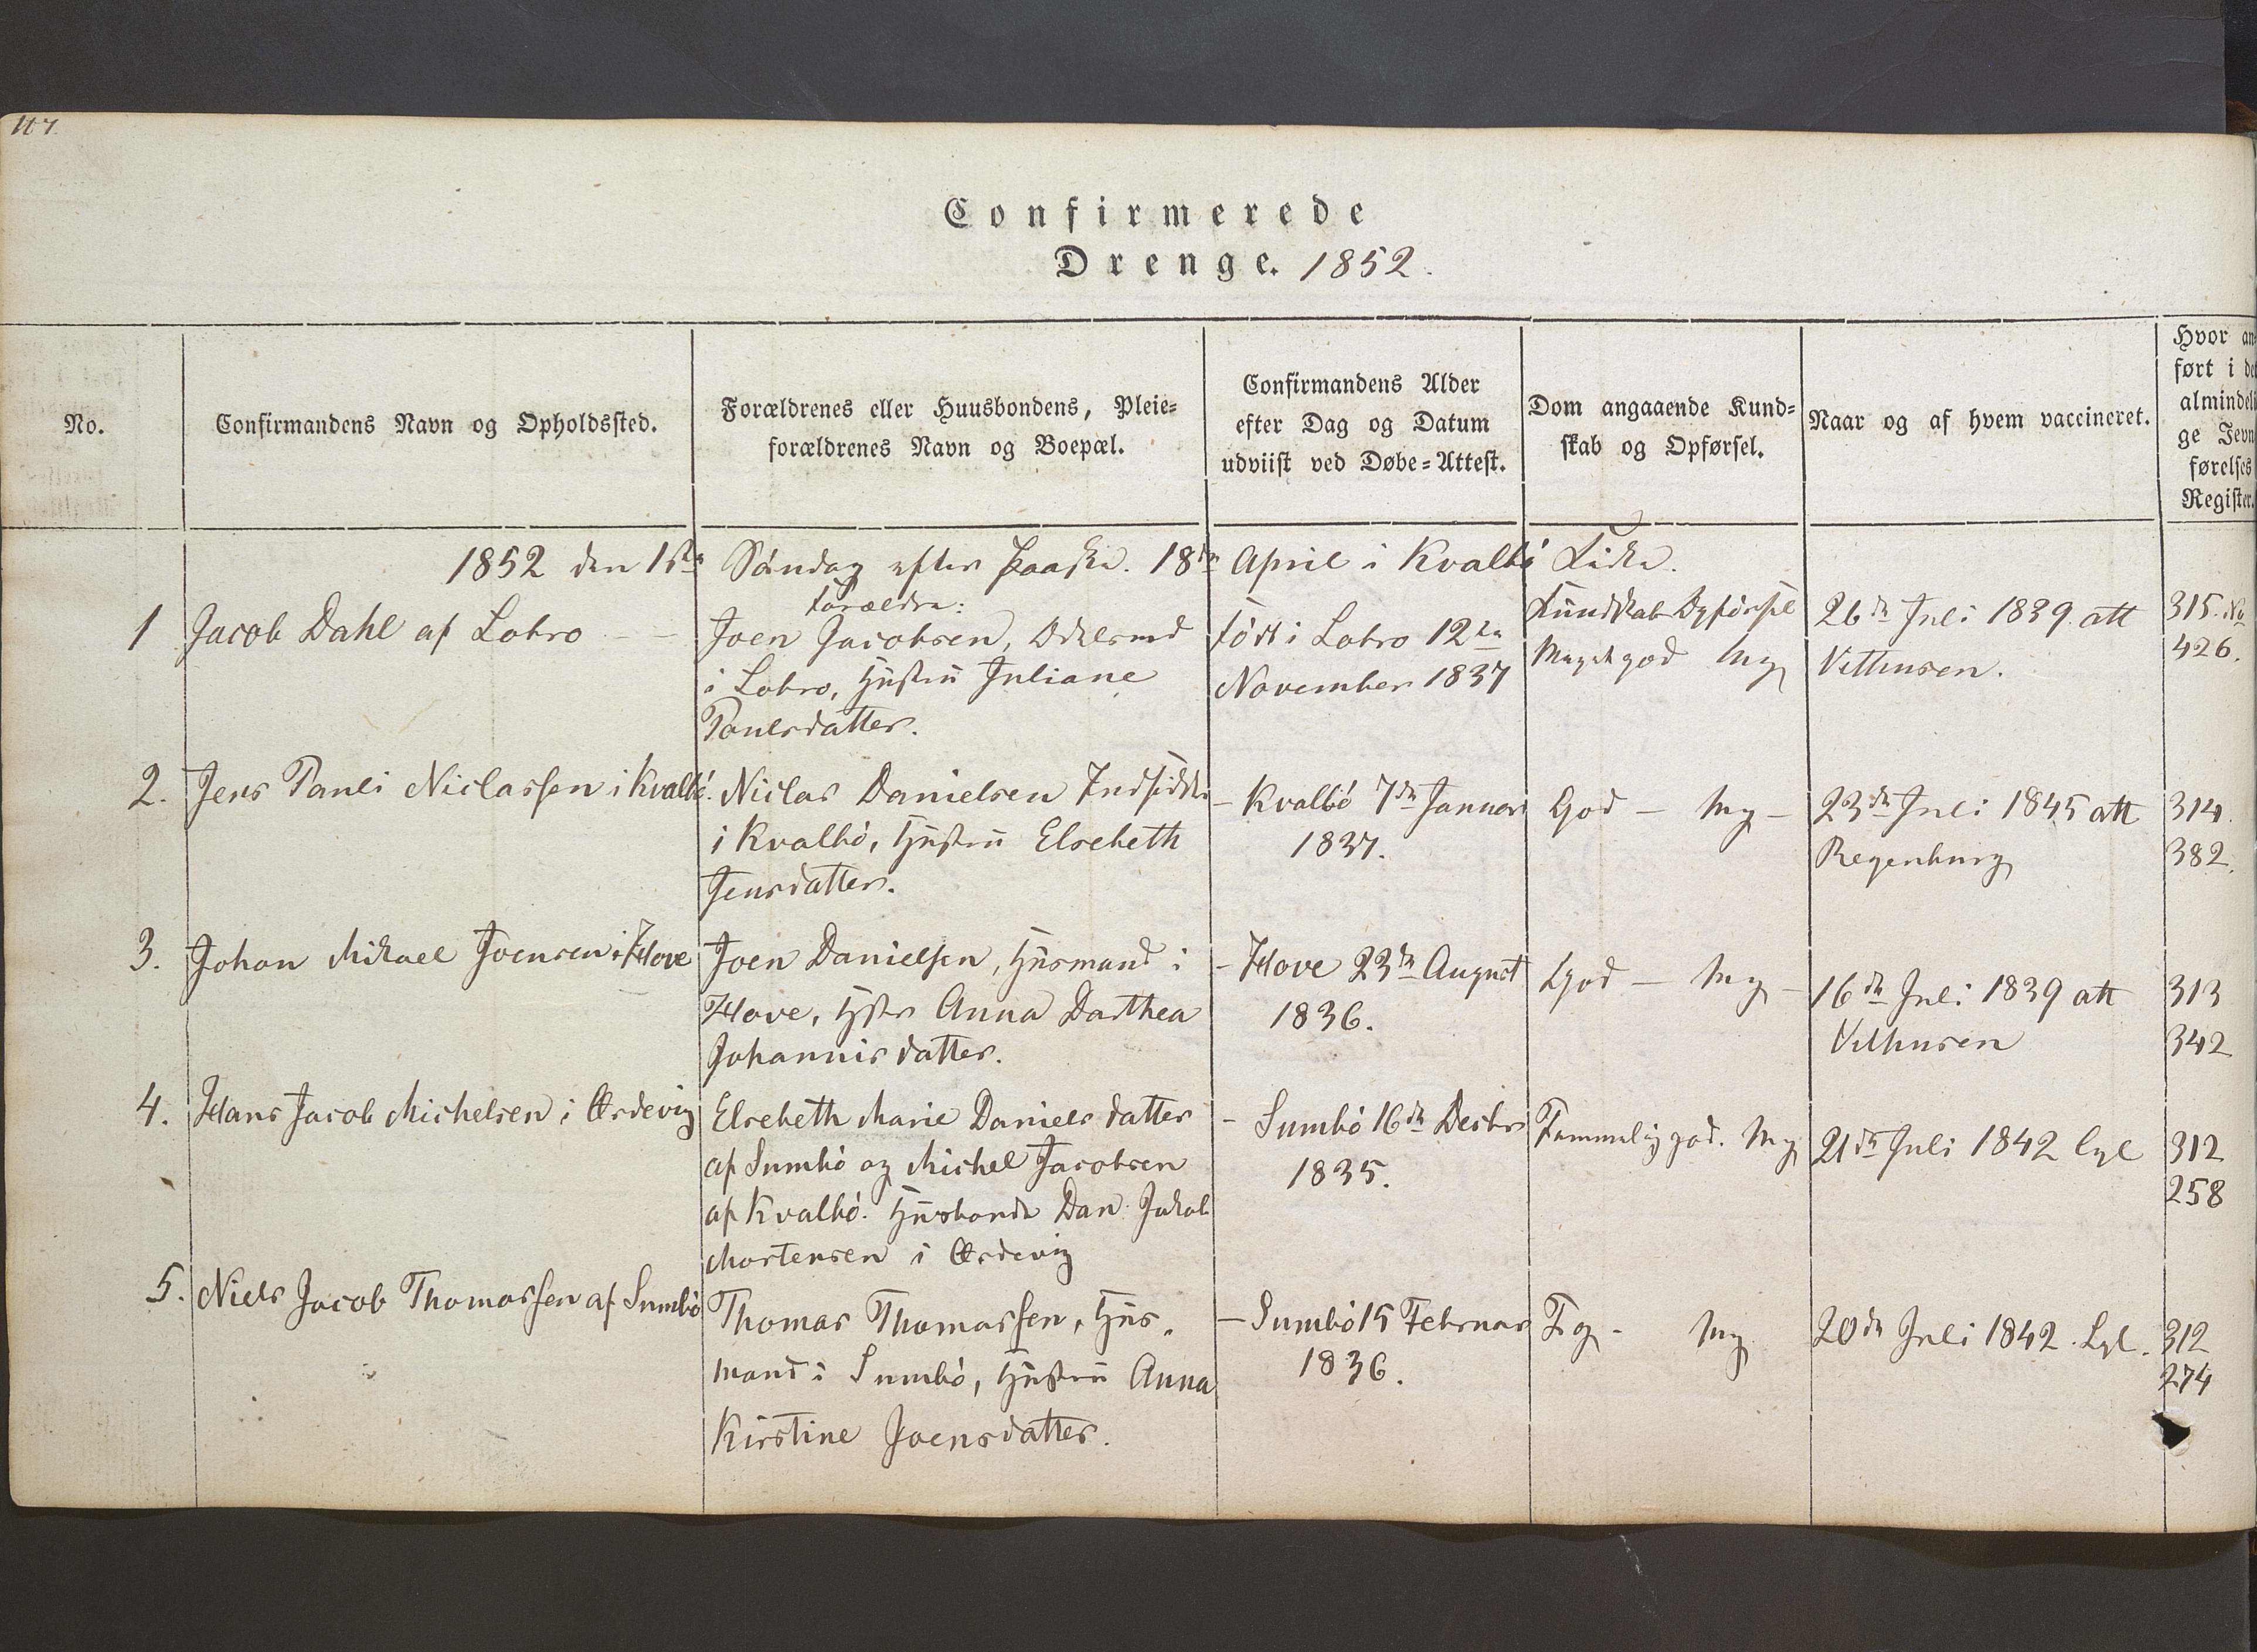 117.
Confirmerede
Drenge. 1852.
No.
Confirmandens Navn og Opholdssted.
Forældrenes eller Huusbondens, Pleie-
forældrenes Navn og Boepæl.
Confirmandens Alder
efter Dag og Datum
udviist ved Døbe-Attest.
Dom angaaende Kund-
skab og Opførsel.
Naar og af hvem vaccineret.
Hvor an-
ført i det
almindeli-
ge Jevn-
førelses
Register.
1852 den 1ste Søndag efter Paaske. 18de April i Kvalbö Kirke.
1 Jacob Dahl af Lobro
Forældre:
Joen Jacobsen, Odelsmd
i Lobro, Hustru Juliane
Poulsdatter.
Föd i Lobro 12te
November 1837
Kundskab Opförsel
Meget god Mg
26de Juli 1839 att
Vithusen.
315. No
426.
2. Jens Pauli Niclassen i Kvalbö.
Niclas Danielsen Indsidder
i Kvalbö, Hustru Elsebeth
Jensdatter.
- Kvalbö 7de Januar
1837.
God - Mg -
23de Juli 1845 att
Regenburg
314.
382.
3. Johan Mikael Joensen i Hove
Joen Danielsen, Husmand i
Hove, Hstr Anna Dorthea
Johannisdatter.
- Hove 23de August
1836.
God - Mg -
16de Juli 1839 att
Vithusen
313
342
4. Hans Jacob Michelsen i Ördevig
Elsebeth Marie Danielsdatter
af Sumbö og Michel Jacobsen
af Kvalbö. Husbonde Dan. Jakob
Mortensen i Ördevig
- Sumbö 16de Decbr
1835.
Temmelig god. Mg
21de Juli 1842 Lyl
312
258
5. Niels Jacob Thomassen af Sumbö
Thomas Thomassen, Hus-
mand i Sumbö, Hustru Anna
Kirstine Joensdatter.
- Sumbö 15 Februar
1836.
Tg - Mg
20de Juli 1842. Lyl.
312
274